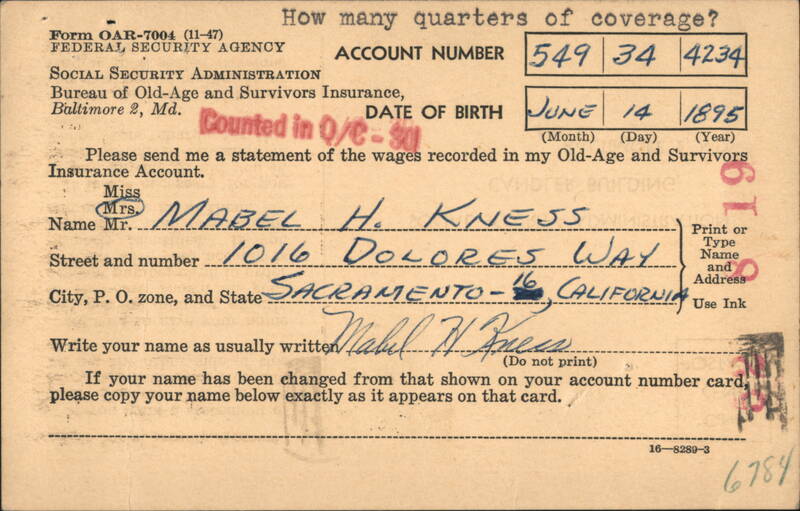 How many quarters of coverage?
Form OAR-7004 (11-47)
FEDERAL SECURITY AGENCY
ACCOUNT NUMBER 549 34 4234
SOCIAL SECURITY ADMINISTRATION
Bureau of Old-Age and Survivors Insurance,
Baltimore 2, Md.
DATE OF BIRTH JUNE 14 1895
(Month) (Day) (Year)
Counted in O/C - 30
Please send me a statement of the wages recorded in my Old-Age and Survivors
Insurance Account.
Miss
Mrs.
Name Mr. MABEL H. KNESS
Street and number 1016 DOLORES WAY
City, P. O. zone, and State SACRAMENTO-16, CALIFORNIA
Print or
Type
Name
and
Address
Use Ink
819
Write your name as usually written Mabel H Kness
(Do not print)
If your name has been changed from that shown on your account number card,
please copy your name below exactly as it appears on that card.
16—8289-3
6784